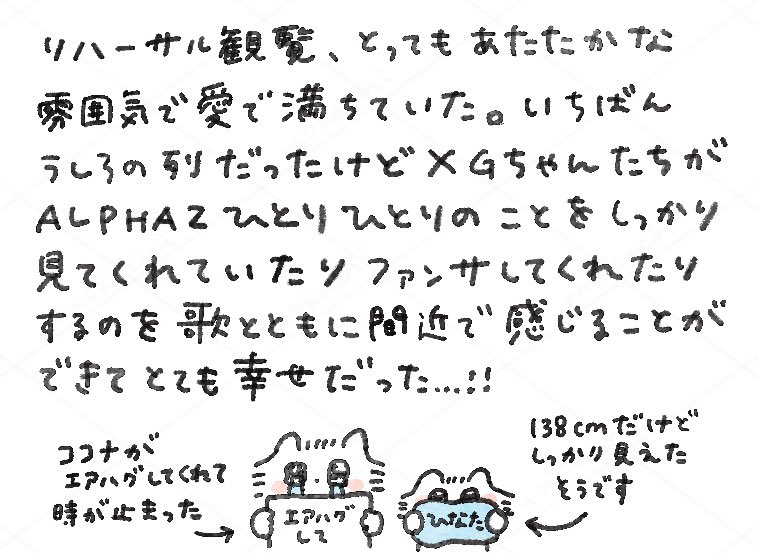 リハーサル観覧、とってもあたたかな
雰囲気で愛で満ちていた。いちばん
うしろの列だったけどXGちゃんたちが
ALPHAZひとりひとりのことをしっかり
見てくれていたりファンサしてくれたり
するのを歌とともに間近で感じることが
できてとても幸せだった...!!
ココナが
エアハグしてくれて
時が止まった
エアハグ
して
138cmだけど
しっかり見えた
そうです
ひなた